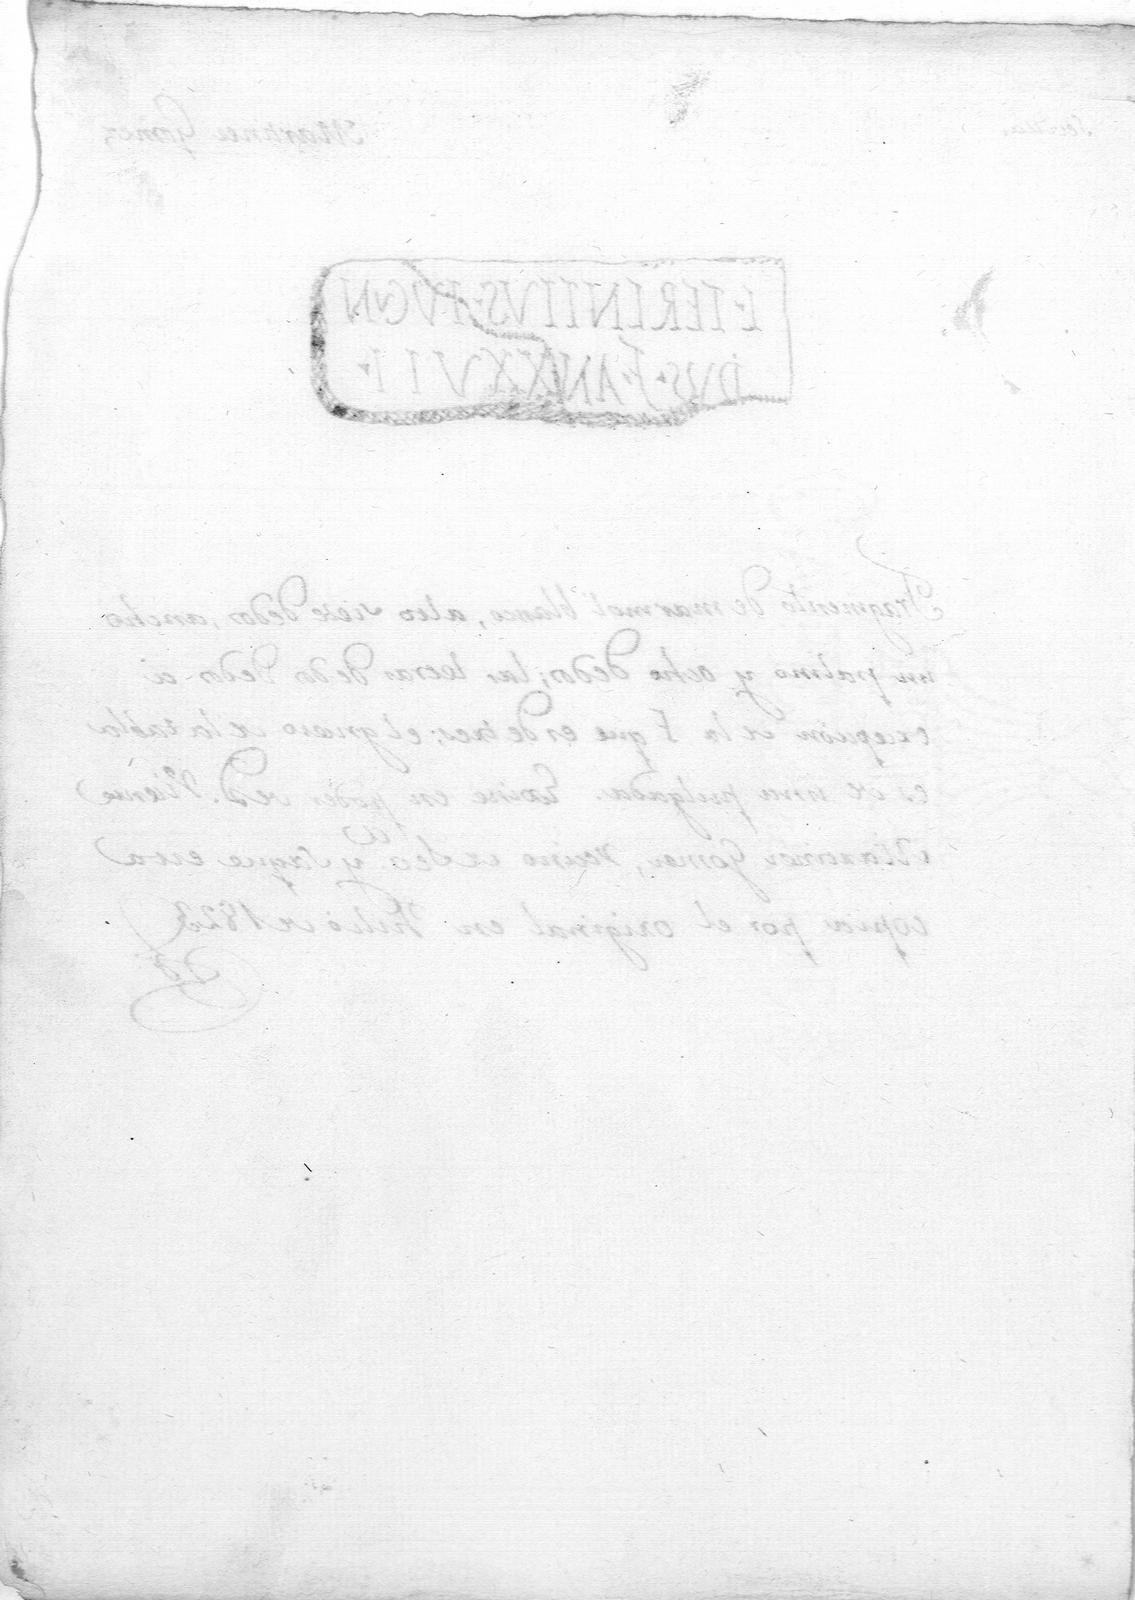 Sevilla.
Martinez Gomez
L·TERENTIVS·PVGN
DVS·F·ANXXVII·I
Fragmento de marmol blanco, alto siete dedos, ancho
un palmo y ocho dedos; las letras de dos dedos á
excepcion de la F que es de tres; el grueso de la tabla
es de una pulgada. Existe en poder de D. Vicente
Martinez Gomez, vecino de y saque esta
copia por el original en Julio de 1823